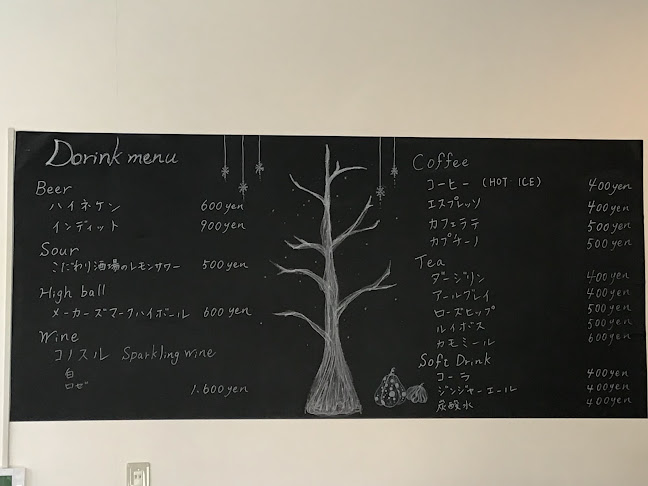 Dorink menu
Beer
ハイネケン 600yen
インディット 900yen
Sour
こだわり酒場のレモンサワー 500yen
High ball
メーカーズマークハイボール 600yen
Wine
コノスル Sparkling wine
白
ロゼ 1.600yen
Coffee
コーヒー (HOT ICE) 400yen
エスプレッソ 400yen
カフェラテ 500yen
カプチーノ 500yen
Tea
ダージリン 400yen
アールグレイ 400yen
ローズヒップ 500yen
ルイボス 500yen
カモミール 600yen
Soft Drink
コーラ 400yen
ジンジャーエール 400yen
炭酸水 400yen